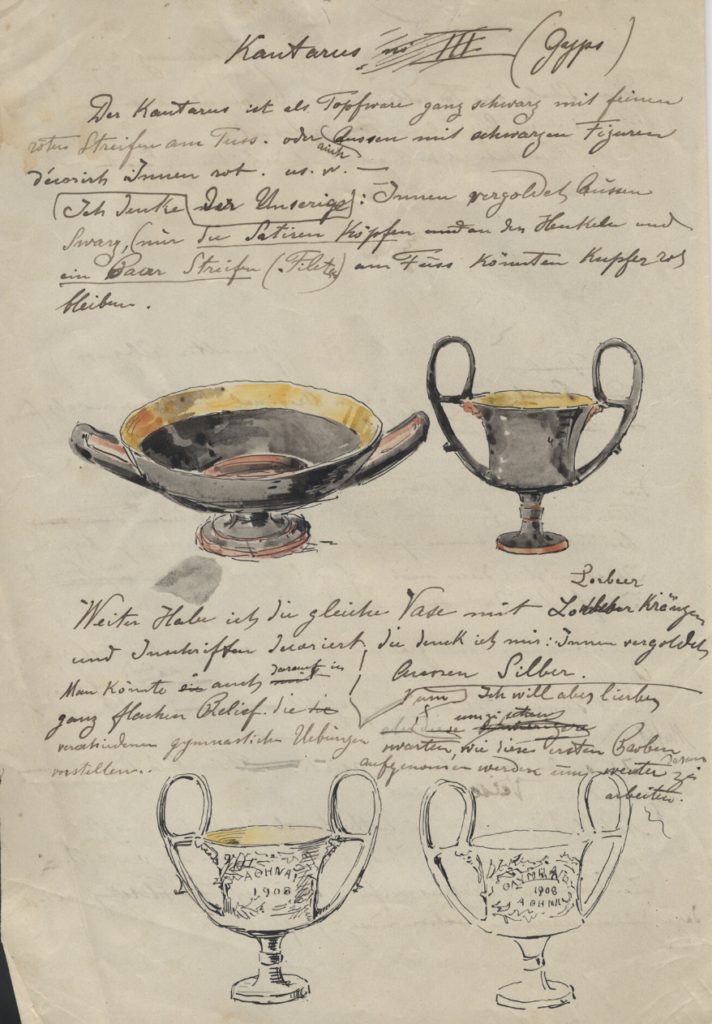 Kantarus no III (Gyps)
Der Kantarus ist als Topfware ganz schwarz mit feinen
roten Streifen am Fuss. oder Aussen mit schwarzen Figuren
auch
décorirt Innen rot. us. w. —
Ich denke der Unserige: Innen vergoldet Aussen
Swarz, (nur die Satiren Köpfen und an den Henkeln und
ein Paar Streifen (Filete) am Fuss könnten Kupfer rot
bleiben.
Lorbeer
Weiter Habe ich die gleiche Vase mit Kränzen
und Inschriften decoriert, die denk ich mir: Innen vergoldet
Aussen Silber.
Man könnte auch darauf in
ganz flachen Relief die
verschiedenen gymnastischen Uebungen
vorstellen..
Ich will aber lieber
umzusehen
warten, wie diese ersten Proben
aufgenommen werden um weiter zu
arbeiten.
ΑΘΗΝΑΙ
1908
ΟΛΥΜΠΙΑ
1908
ΑΘΗΝΑΙ